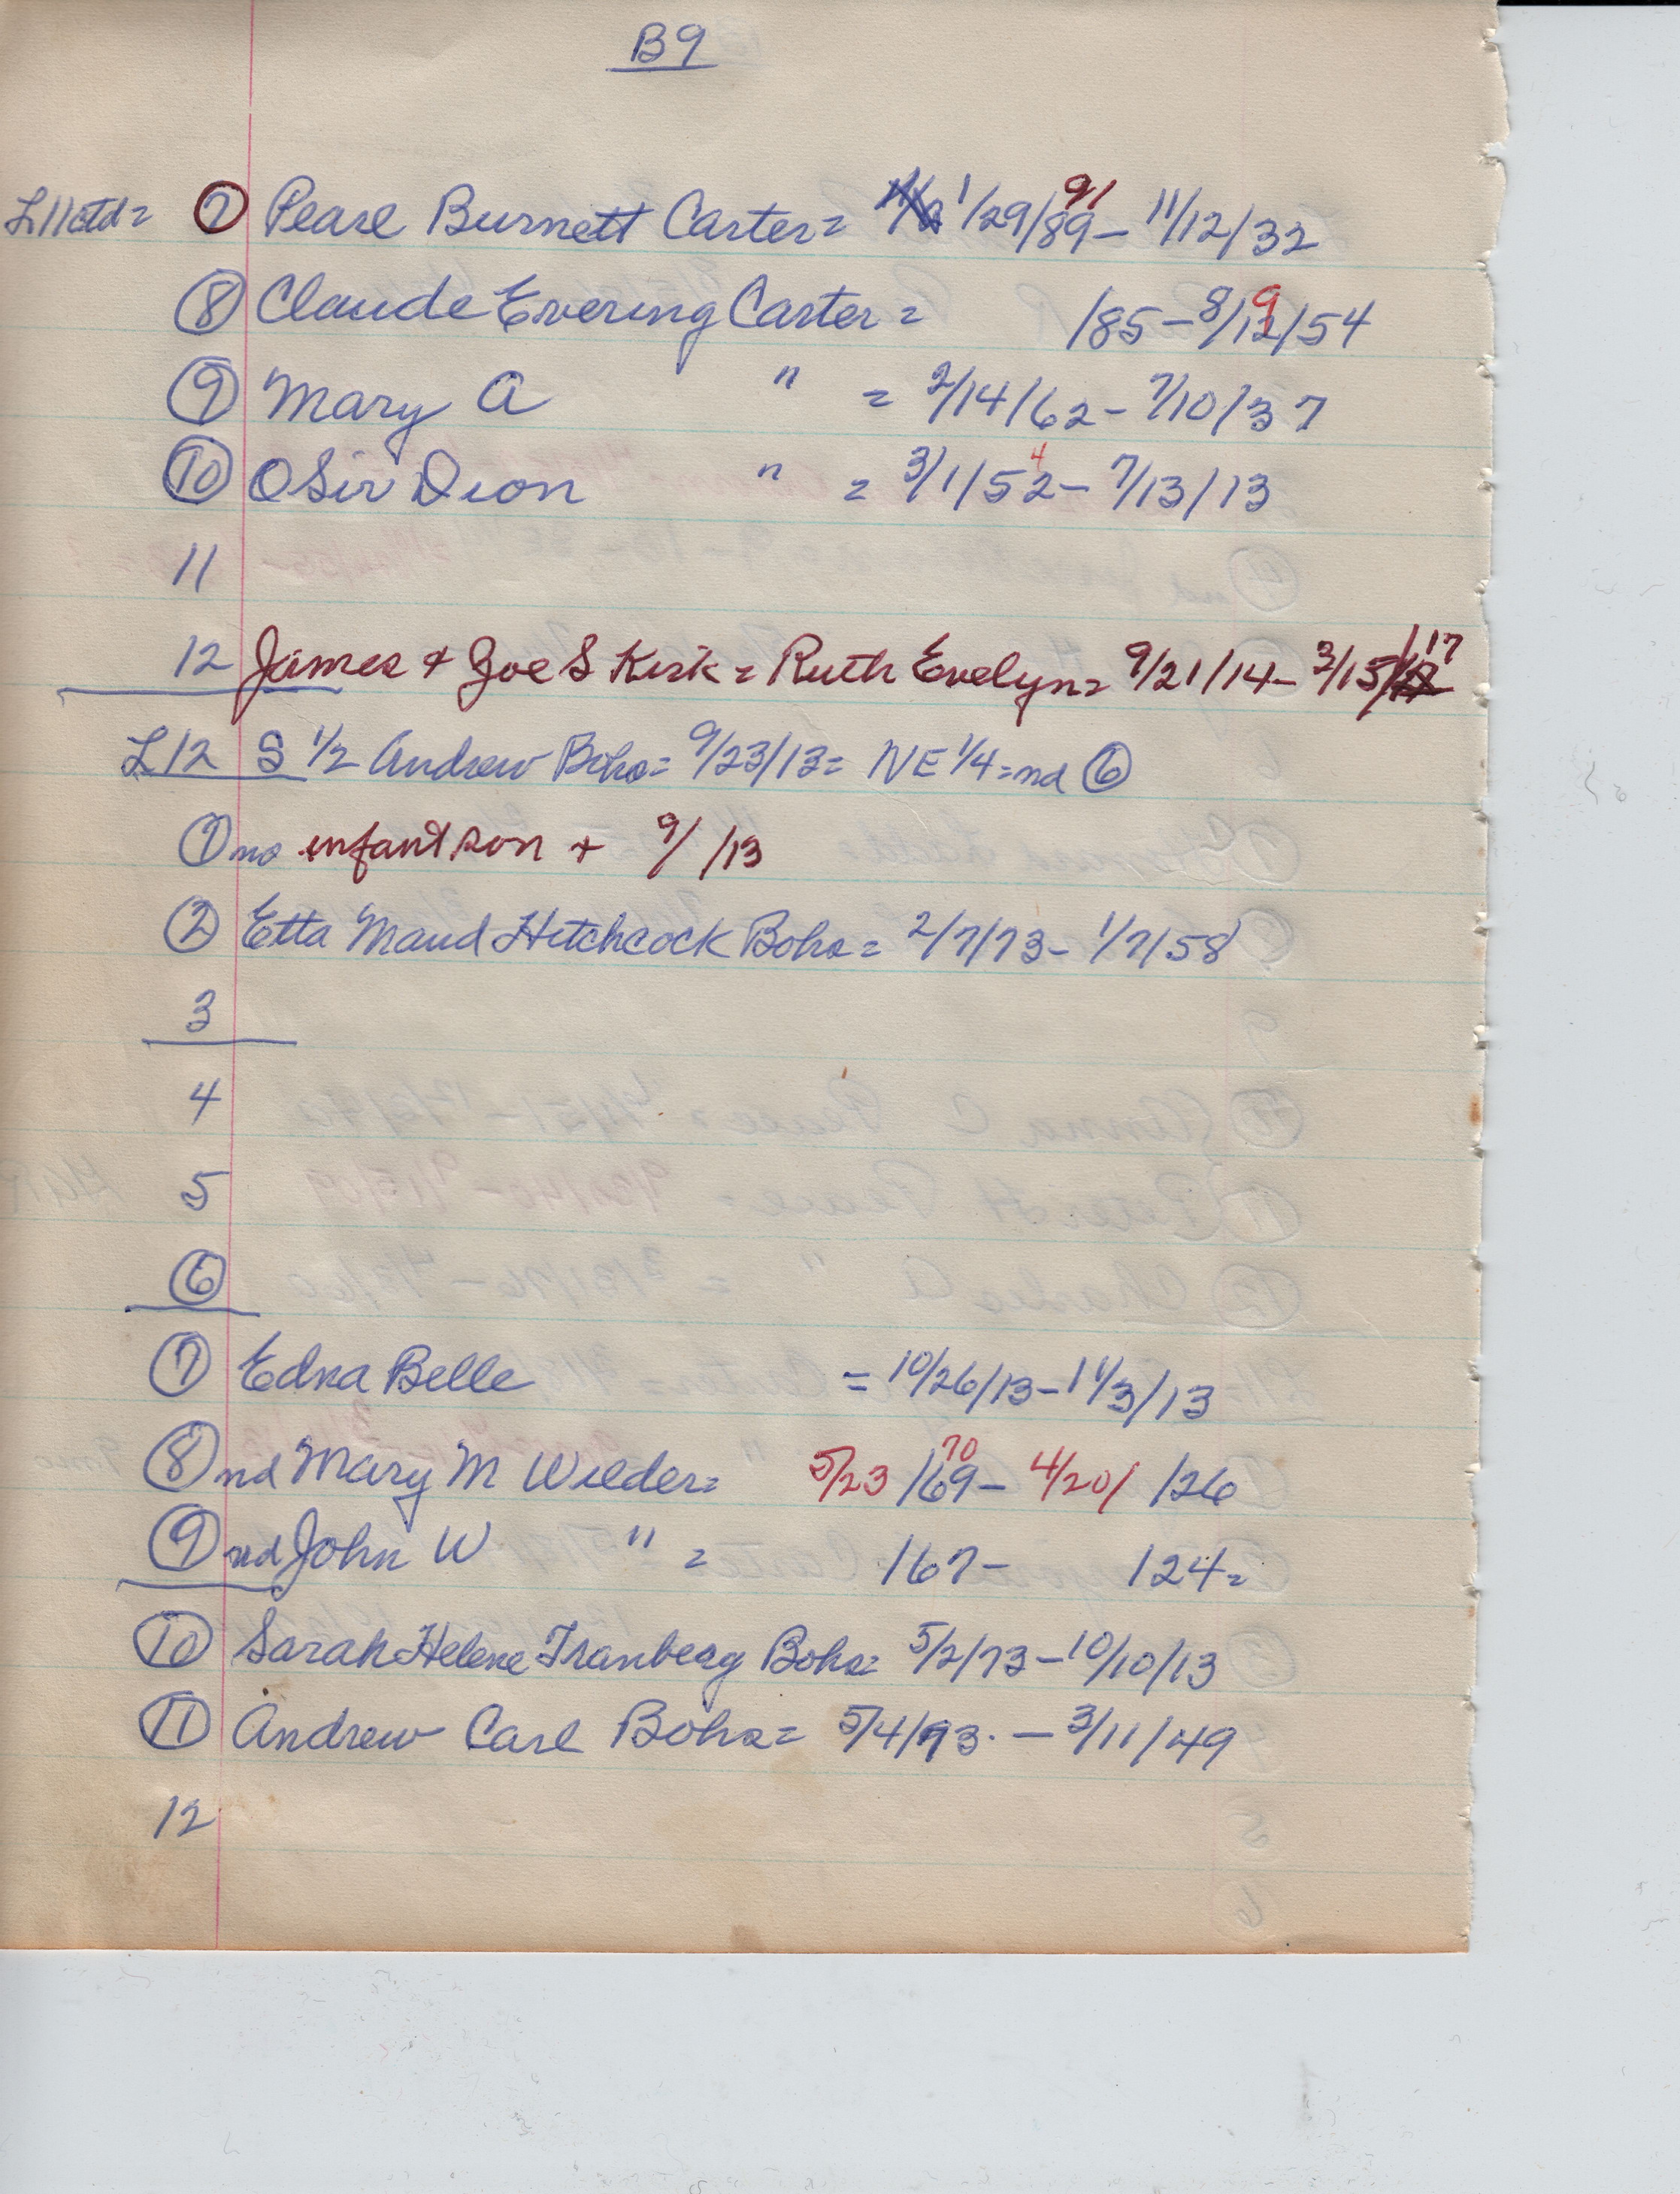 B9
L11ctd = 7 Pearl Burnett Carter = 1/29/89 91 - 11/12/32
8 Claude Evering Carter = /85 - 8/12/54 9
9 Mary A " = 2/14/62 - 7/10/37
10 OSir Dion " = 3/1/52 4 - 7/13/13
11
12 James + Zoe S Kirk = Ruth Evelyn = 9/21/14 - 3/15/17
L12 S 1/2 Andrew Bohs = 9/23/13 = NE 1/4 = nd 6
1 no infant son + 9/ /13
2 Etta Maud Hitchcock Bohs = 2/7/73 - 1/7/58
3
4
5
6
7 Edna Belle = 10/26/13 - 11/3/13
8 nd Mary M Wilder = 5/23 /69 70 - 4/20/ /26
9 nd John W " = /67 - /24 =
10 Sarah Helene Tranberg Bohs = 5/2/73 - 10/10/13
11 Andrew Carl Bohs = 5/4/73. - 3/11/49
12